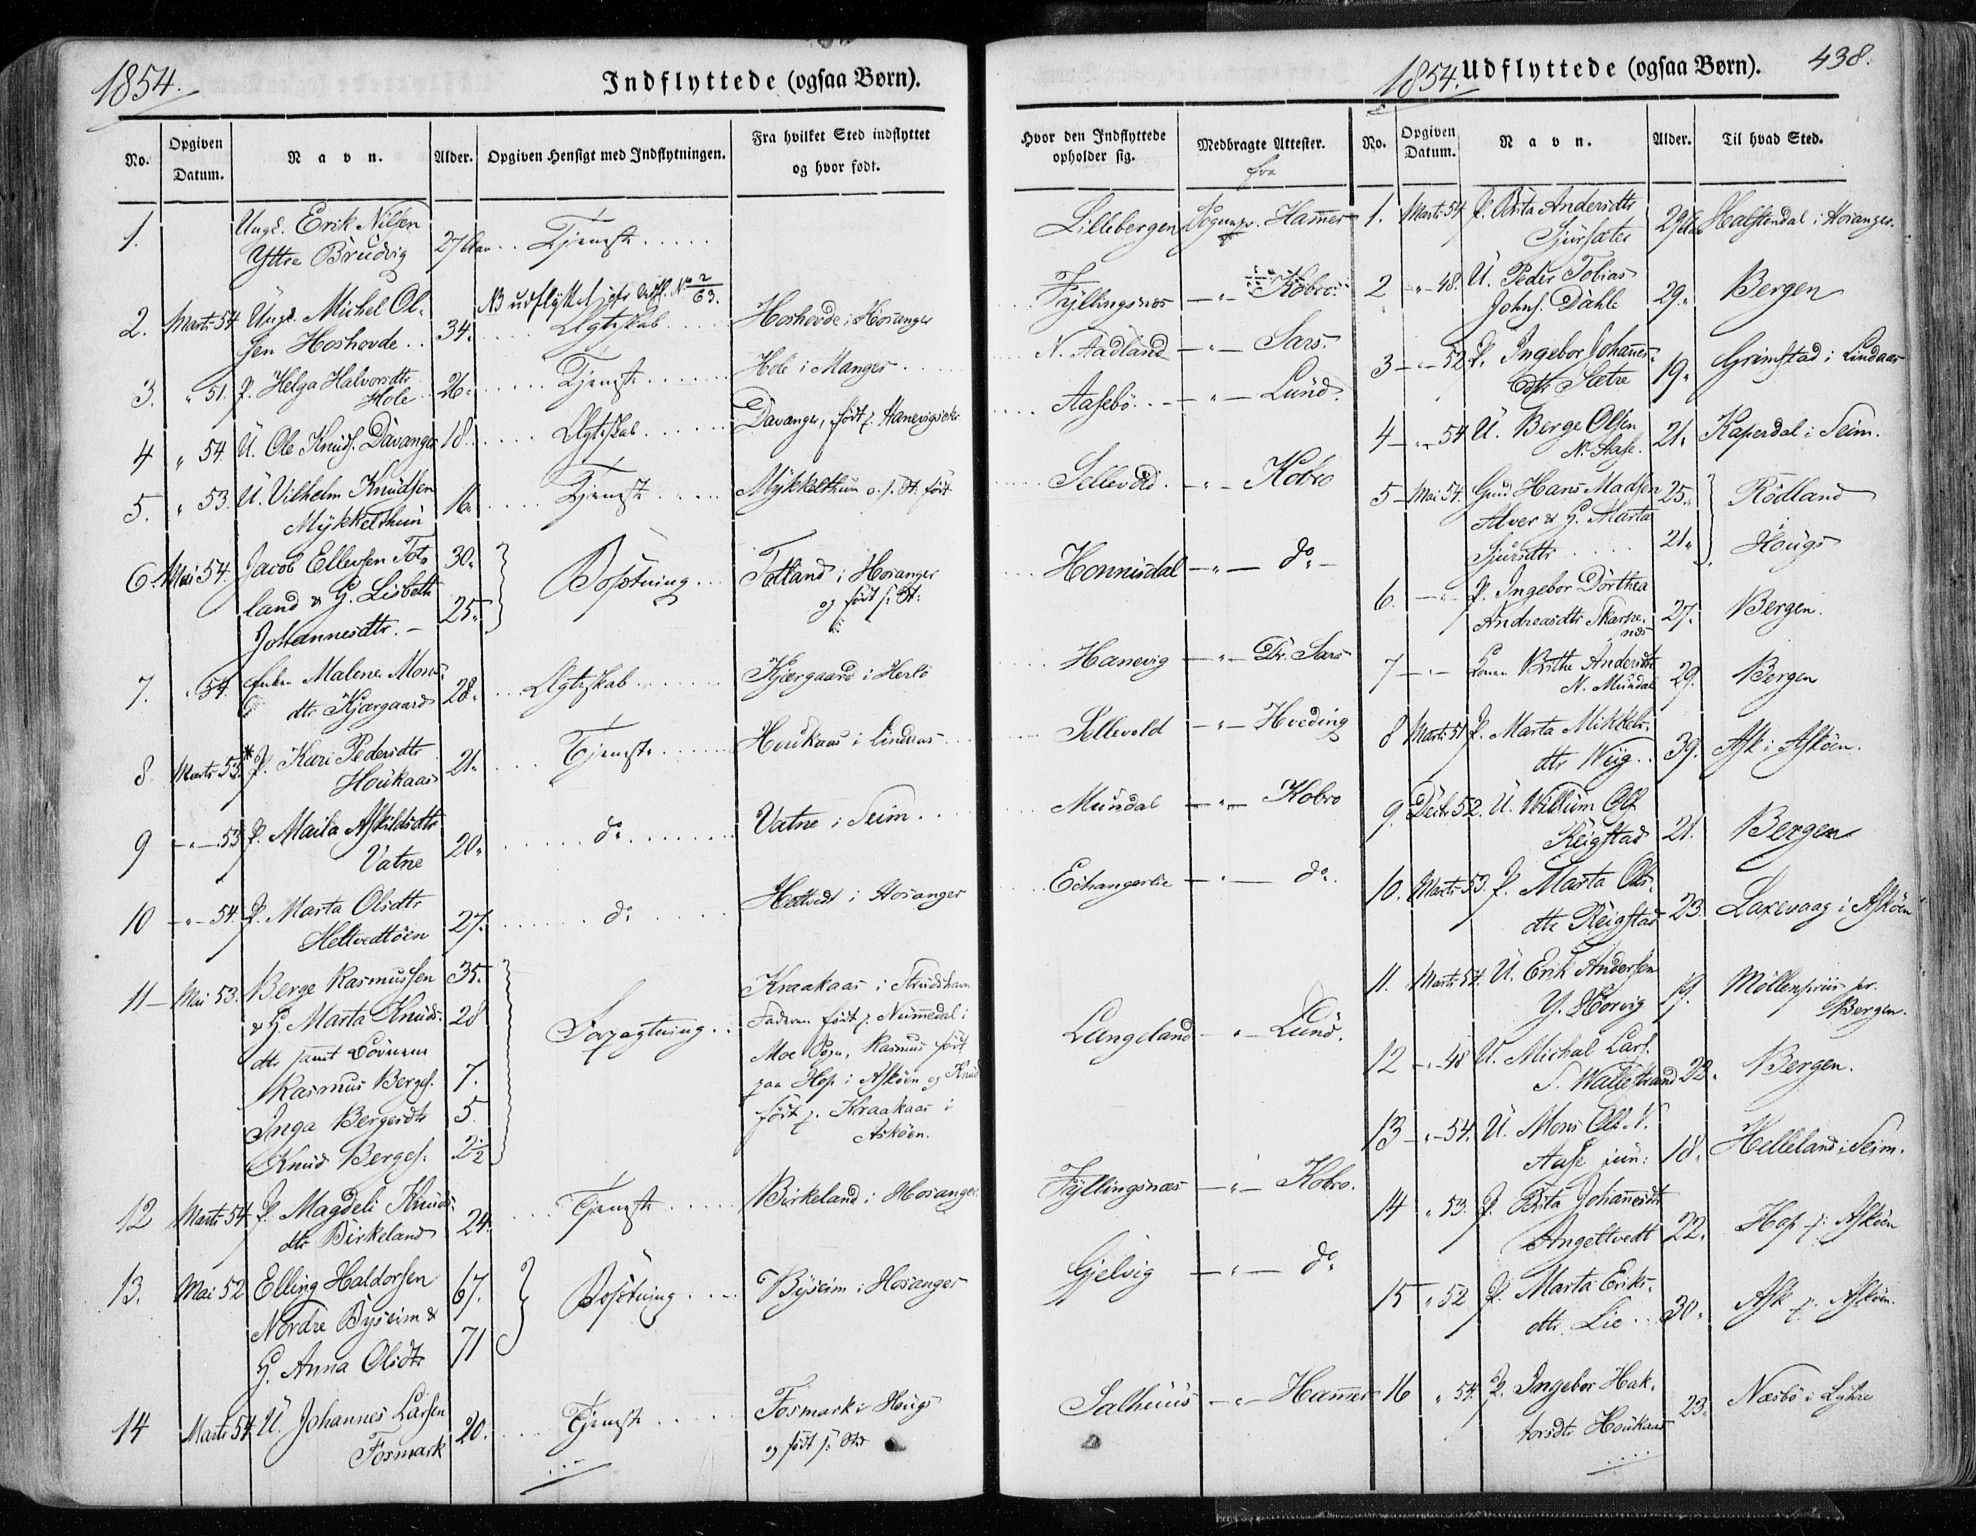 1854.
Indflyttede (ogsaa Børn).
No.
Opgiven Datum.
Navn.
Alder.
Opgiven Hensigt med Indflytningen.
Fra hvilket Sted indflyttet og hvor født.
1. Ungk. Erik Nilsen 27 Aar .. Tjeneste .....
Yttre Brudvig
NB udflyttet jfr. Udfl. No 2/63.
2. Marts 54 Ungk. Michel Ol- 34. Ægteskab .... Hoshovde i Hosanger
sen Hoshovde ..
3. " 51. P. Helga Halvorsdtr 26. ..... Tjeneste ..... Hole i Manger .....
Hole
4 " 54. U. Ole Knuds. Davanger 18. .... Ægteskab ..... Davanger, født p. Hanevigsaker
5. " 53. U. Vilhelm Knudsen 16. .... Tjeneste ..... Mykkelthun o. f. St. født
Mykkelthun
6. Mai 54. Jacob Ellevsen Tot- 30. Bosætning ... Totland i Hosanger
land & H. Lisbeth 25. og født s: St:
Johannesdtr. -
7. " 54. Enken Malene Mons- 28. ... Ægteskab ..... Kjærgaard i Herlö
dtr Kjærgaard
8. Marts 53. * P. Kari Pedersdtr 21. .... Tjeneste ..... Houkaas i Lindaas
Houkaas
9 -"- 53 P. Marta Askildsdtr 20. ..... do ..... Vatne i Seim ....
Vatne
10 -"- 54. P. Marta Olsdtr 27. ..... do ..... Heltvedt i Hosanger
Heltvedtöen
11- Mai 53. Berge Rasmussen 35. Kraakaas i Strudshavn
& H. Marta Knuds- 28 Forpagtning .. Faderen født p. Nummedal i
dtr samt Börnene Moe Sogn, Rasmus født
Rasmus Berges. 7. paa Hop i Asköen og Knud
Inga Bergesdtr 5. født p. Kraakaas i
Knud Berges. 2½ Asköen.
12 Marts 54 P. Magdeli Knuds- 24. ... Tjeneste .... Birkeland i Hosanger.
dtr Birkeland
13. Mai 52 Elling Haldorsen 67. Bosætning .... Byseim i Hosanger
Nordre Byseim &
H. Anna Olsdtr 71
14 Marts 54 U. Johannes Larsen 20. ... Tjeneste ..... Fosmark i Hougs
Fosmark og født s: Std
Hvor den Indflyttede opholder sig.
Medbragte Attester.
fra
Lillebergen Sognepr. Hammer
Fyllingsnæs -"- Kobro.
N. Aadland -"- Sars.
Aasebö ... -"- Lund.
Sellevold. -"- Kobro
Honnisdal -"- do -
Hanevig -"- Dr. Sars
Sellevold -"- Hveding
Mundal -"- Kobro
Echangerlie -"- do.
Langeland -"- Lund.
Fyllingsnæs -"- Kobro.
Gjelvig -"- do
Salhuus -"- Hammer
1854.
Udflyttede (ogsaa Børn).
438.
No.
Opgiven Datum.
Navn.
Alder.
Til hvad Sted.
1. Marts 54 P. Brita Andersdtr 29 Aar Halstendal i Hosanger.
Sjursæter
2 -"- 48. U. Peder Tobias 29. Bergen
Johns. Dahle
3 -"- 52 P. Ingebor Johannes- 19. Grimstad i Lindaas
dtr Sætre
4 -"- 54 U. Berge Olsen 21. Kaperdal i Seim.
N. Aase.
5 - Mai 54. Gmd Hans Madsen 25. Rödland
Alver & H. Marta Hougs
Sjursdtr ..... 21.
6. -"- P. Ingebor Dorthea 27. Bergen.
Andreasdtr Skarpe-
næs
7 -"- Brithe Andersdtr 29. Bergen
N. Mundal
8 Marts 51 P. Marta Mikkels- 39. Ask i Asköen.
dtr Wiig ..
9. Decbr 52. U. Willum Ols. 21. Bergen
Reigstad
10. Marts 53. P. Marta Ols- 23. Laxevaag i Asköen
dtr Reigstad
11. Marts 54. U. Erik Andersen 19. Möllenpriis pr.
Y. Horvig Bergen.
12 -"- 48 U. Michal Lars. 22. Bergen.
S. Wallestrand
13 -"- 54. U. Mons Ols. N. 18. Helleland i Seim.
Aase jun:
14 " 53. P. Brita Johannesdtr 22. Hop p. Asköen
Angeltvedt
15 " 52 P. Marta Eriks- 30. Ask p. Asköen.
dtr. Lie ..
16 " 54. P. Ingebor Hak- 23. Næsbö i Lyhre
torsdtr Houkaas